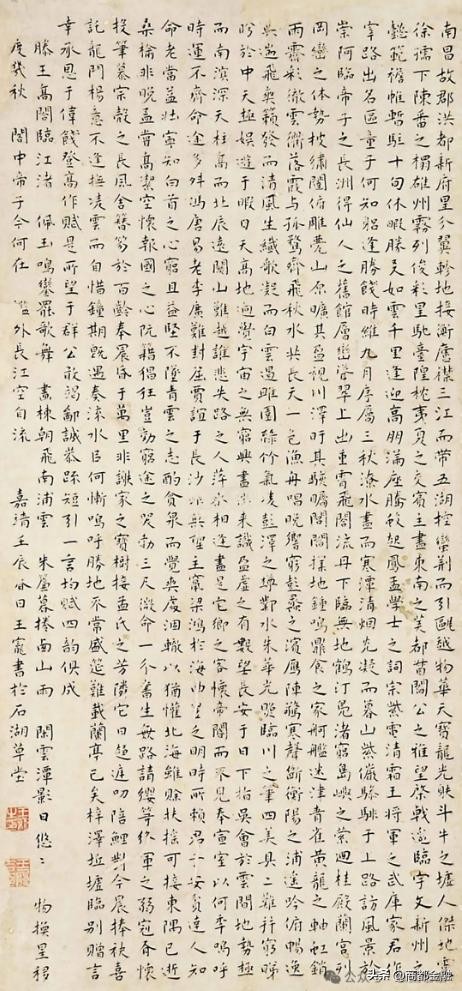 南昌故郡洪都新府星分翼軫地接衡廬襟三江而帶五湖控蠻荊而引甌越物華天寶龍光射斗牛之墟人傑地靈
徐孺下陳蕃之榻雄州霧列俊彩星馳臺隍枕夷夏之交賓主盡東南之美都督閻公之雅望棨戟遙臨宇文新州之
懿範襜帷暫駐十旬休暇勝友如雲千里逢迎高朋滿座騰蛟起鳳孟學士之詞宗紫電清霜王將軍之武庫家君作
宰路出名區童子何知躬逢勝餞時維九月序屬三秋潦水盡而寒潭清煙光凝而暮山紫儼驂騑于上路訪風景於
崇阿臨帝子之長洲得仙人之舊館層巒聳翠上出重霄飛閣流丹下臨無地鶴汀鳧渚窮島嶼之縈迴桂殿蘭宮列
岡巒之體勢披繡闥俯雕甍山原曠其盈視川澤盱其駭矚閭閻撲地鐘鳴鼎食之家舸艦迷津青雀黃龍之軸虹銷
雨霽彩徹雲衢落霞與孤鶩齊飛秋水共長天一色漁舟唱晚響窮彭蠡之濱雁陣驚寒聲斷衡陽之浦遙吟俯暢逸
興遄飛爽籟發而清風生纖歌凝而白雲遏睢園綠竹氣凌彭澤之樽鄴水朱華光照臨川之筆四美具二難并窮睇
眄於中天極娛遊于暇日天高地迥覺宇宙之無窮興盡悲來識盈虛之有數望長安于日下指吳會於雲間地勢極
而南溟深天柱高而北辰遠關山難越誰悲失路之人萍水相逢盡是他鄉之客懷帝閽而不見奉宣室以何年嗚呼
時運不齊命途多舛馮唐易老李廣難封屈賈誼于長沙非無聖主竄梁鴻于海曲豈乏明時所賴君子安貧達人知
命老當益壯寧知白首之心窮且益堅不墜青雲之志酌貪泉而覺爽處涸轍以猶懽北海雖賒扶搖可接東隅已逝
桑榆非晚孟嘗高潔空懷報國之心阮籍猖狂豈効窮途之哭勃三尺微命一介書生無路請纓等終軍之弱冠有懷
投筆慕宗愨之長風舍簪笏於百齡奉晨昏于萬里非謝家之寶樹接孟氏之芳隣它日趨庭叨陪鯉對今晨捧袂喜
託龍門楊意不逢撫凌雲而自惜鍾期既遇奏流水以何慚嗚呼勝地不常盛筵難再蘭亭已矣梓澤坵墟臨別贈言
幸承恩于偉餞登高作賦是所望于群公敢竭鄙誠恭疏短引一言均賦四韻俱成
滕王高閣臨江渚 佩玉鳴鸞罷歌舞 畫棟朝飛南浦雲 朱簾暮捲南山雨 閒雲潭影日悠〻 物換星移
度幾秋 閣中帝子今何在 檻外長江空自流 嘉靖壬辰春日王寵書於石湖草堂
头条 @商都金融